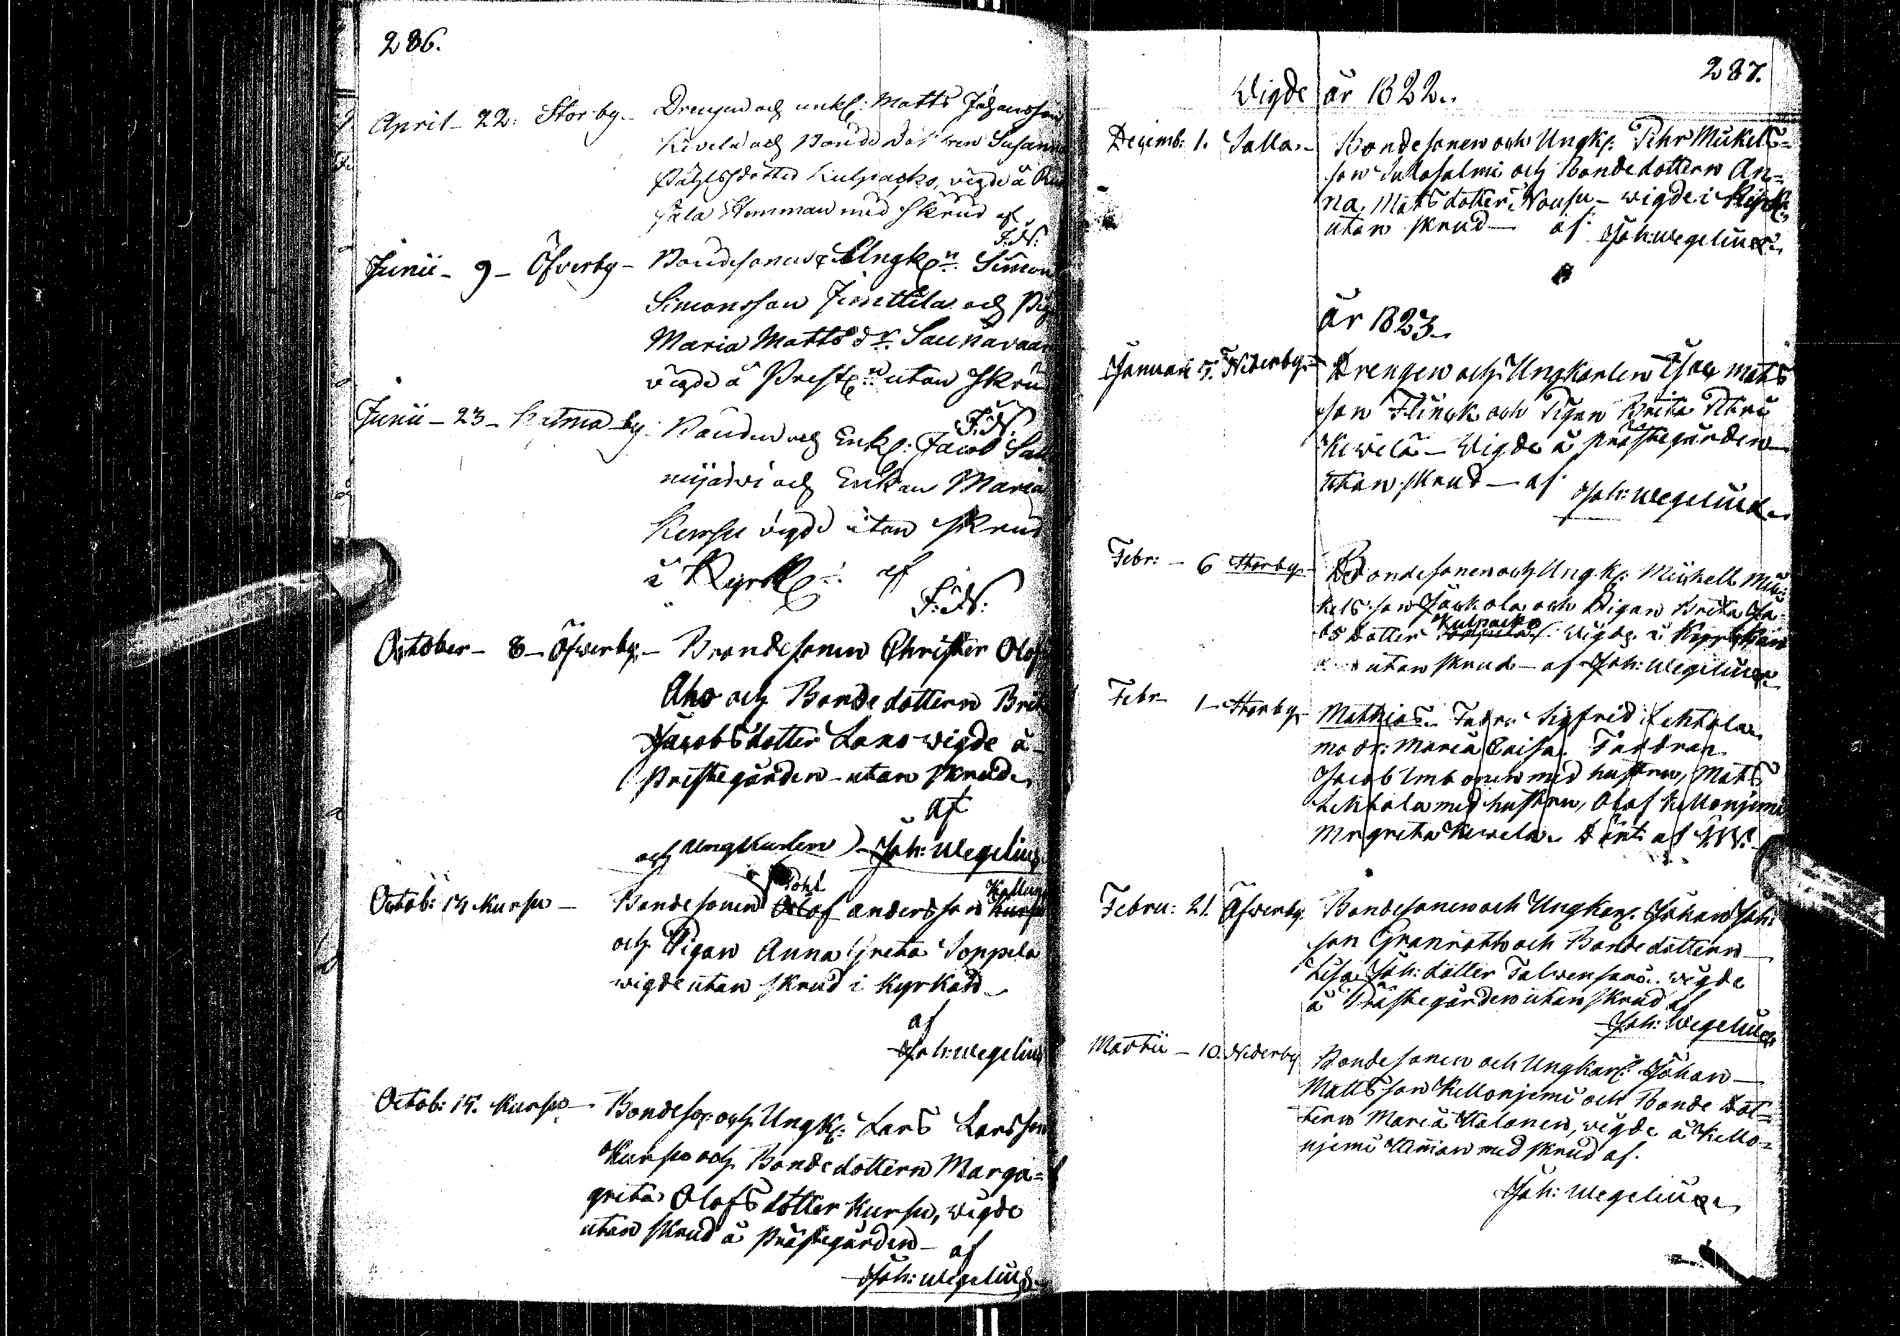 286.
April - 22. Storby - Drengen och unk: Matts Johansson
Kivela och Bonde Dottren Susanna
Påhlsdotter Kulpacko, vigde å
Hemman med Skrud af
F: N:
Junii - 9 - Öfverby - Bondesonen Ungk:n Simon
Simonsson Junttila och Pig
Maria Matts dr Saunavaara
vigde å Prestg:n utan Skrud
F: N:
Junii - 23 - by - Bonden och Enkl: Jacob
mijärvi och Enkan Maria
Kursu vigde utan Skrud
i Kyrk: af
F: N:
October - 8 - Öfverby - Bondesonen Christer Olofs
Aho och Bondedottern Brita
Jacobsdotter Lans wigde å
Prestegården utan skrud
af
och Ungkarlen) Joh: Wegelius
Pohl Kallung
Octob: 14 Kursu - Bondesonen Olof andersson Kursu
och Pigan Anna Greta Soppela
wigde utan skrud i Kyrkan
af
Joh: Wegelius
Octob: 15. Kursu - Bondeso: och Ungk: Lars Larsson
Kursu och Bondedottern Marga=
greta Olofsdotter Kursu, wigde
utan skrud å Prästegården - af
Joh: Wegelius
287.
Wigde år 1822.
Decemb: 1. Salla - Bondesonen och Ungk: Pehr Mickels=
son Salosalmi och Bondedottern An=
na Matsdotter Nousu - wigde i Kyrk:
utan skrud - af Joh: Wegelius
år 1823.
Januari 5. Nederby - Drengen och Ungkarlen Isac Mats
son Flinck och Pigan Brita Pehrs
Kiwelä - Wigde å prästegården
utan skrud - af
Joh: Wegelius
Febr: - 6 Storby - Bondesonen och Ungk: Michell Mic
kelsson Jackola och Pigan Brita Ja
Kulpacko
bsdotter wigde i Kyrckan
utan skrud - af Joh: Wegelius
Febr 1 - Storby - Mathias. Fader Sigfrid Lehtola
modr: Maria Caisa. Faddrar
Jacob Imbonen med hustru, Mats
Lehtola med hustru, Olof Kellonjemi
Mrgreta Kiwela. Döpt af J.W.
Febru: 21. Öfwerby Bondesonen och Ungkar: Johan Joh:
son Granroth och Bondedottern
Lisa Joh: dotter Talwensari. wigde
å Prästegården utan skrud af
Joh: Wegelius
Martii - 10. Nederby Bondesonen och Ungkarl: Johan
Mattsson Kellonjemi och Bonde dot=
tern Maria Halonen, wigde å Kello=
njemi Heman med skrud af
Joh: Wegelius